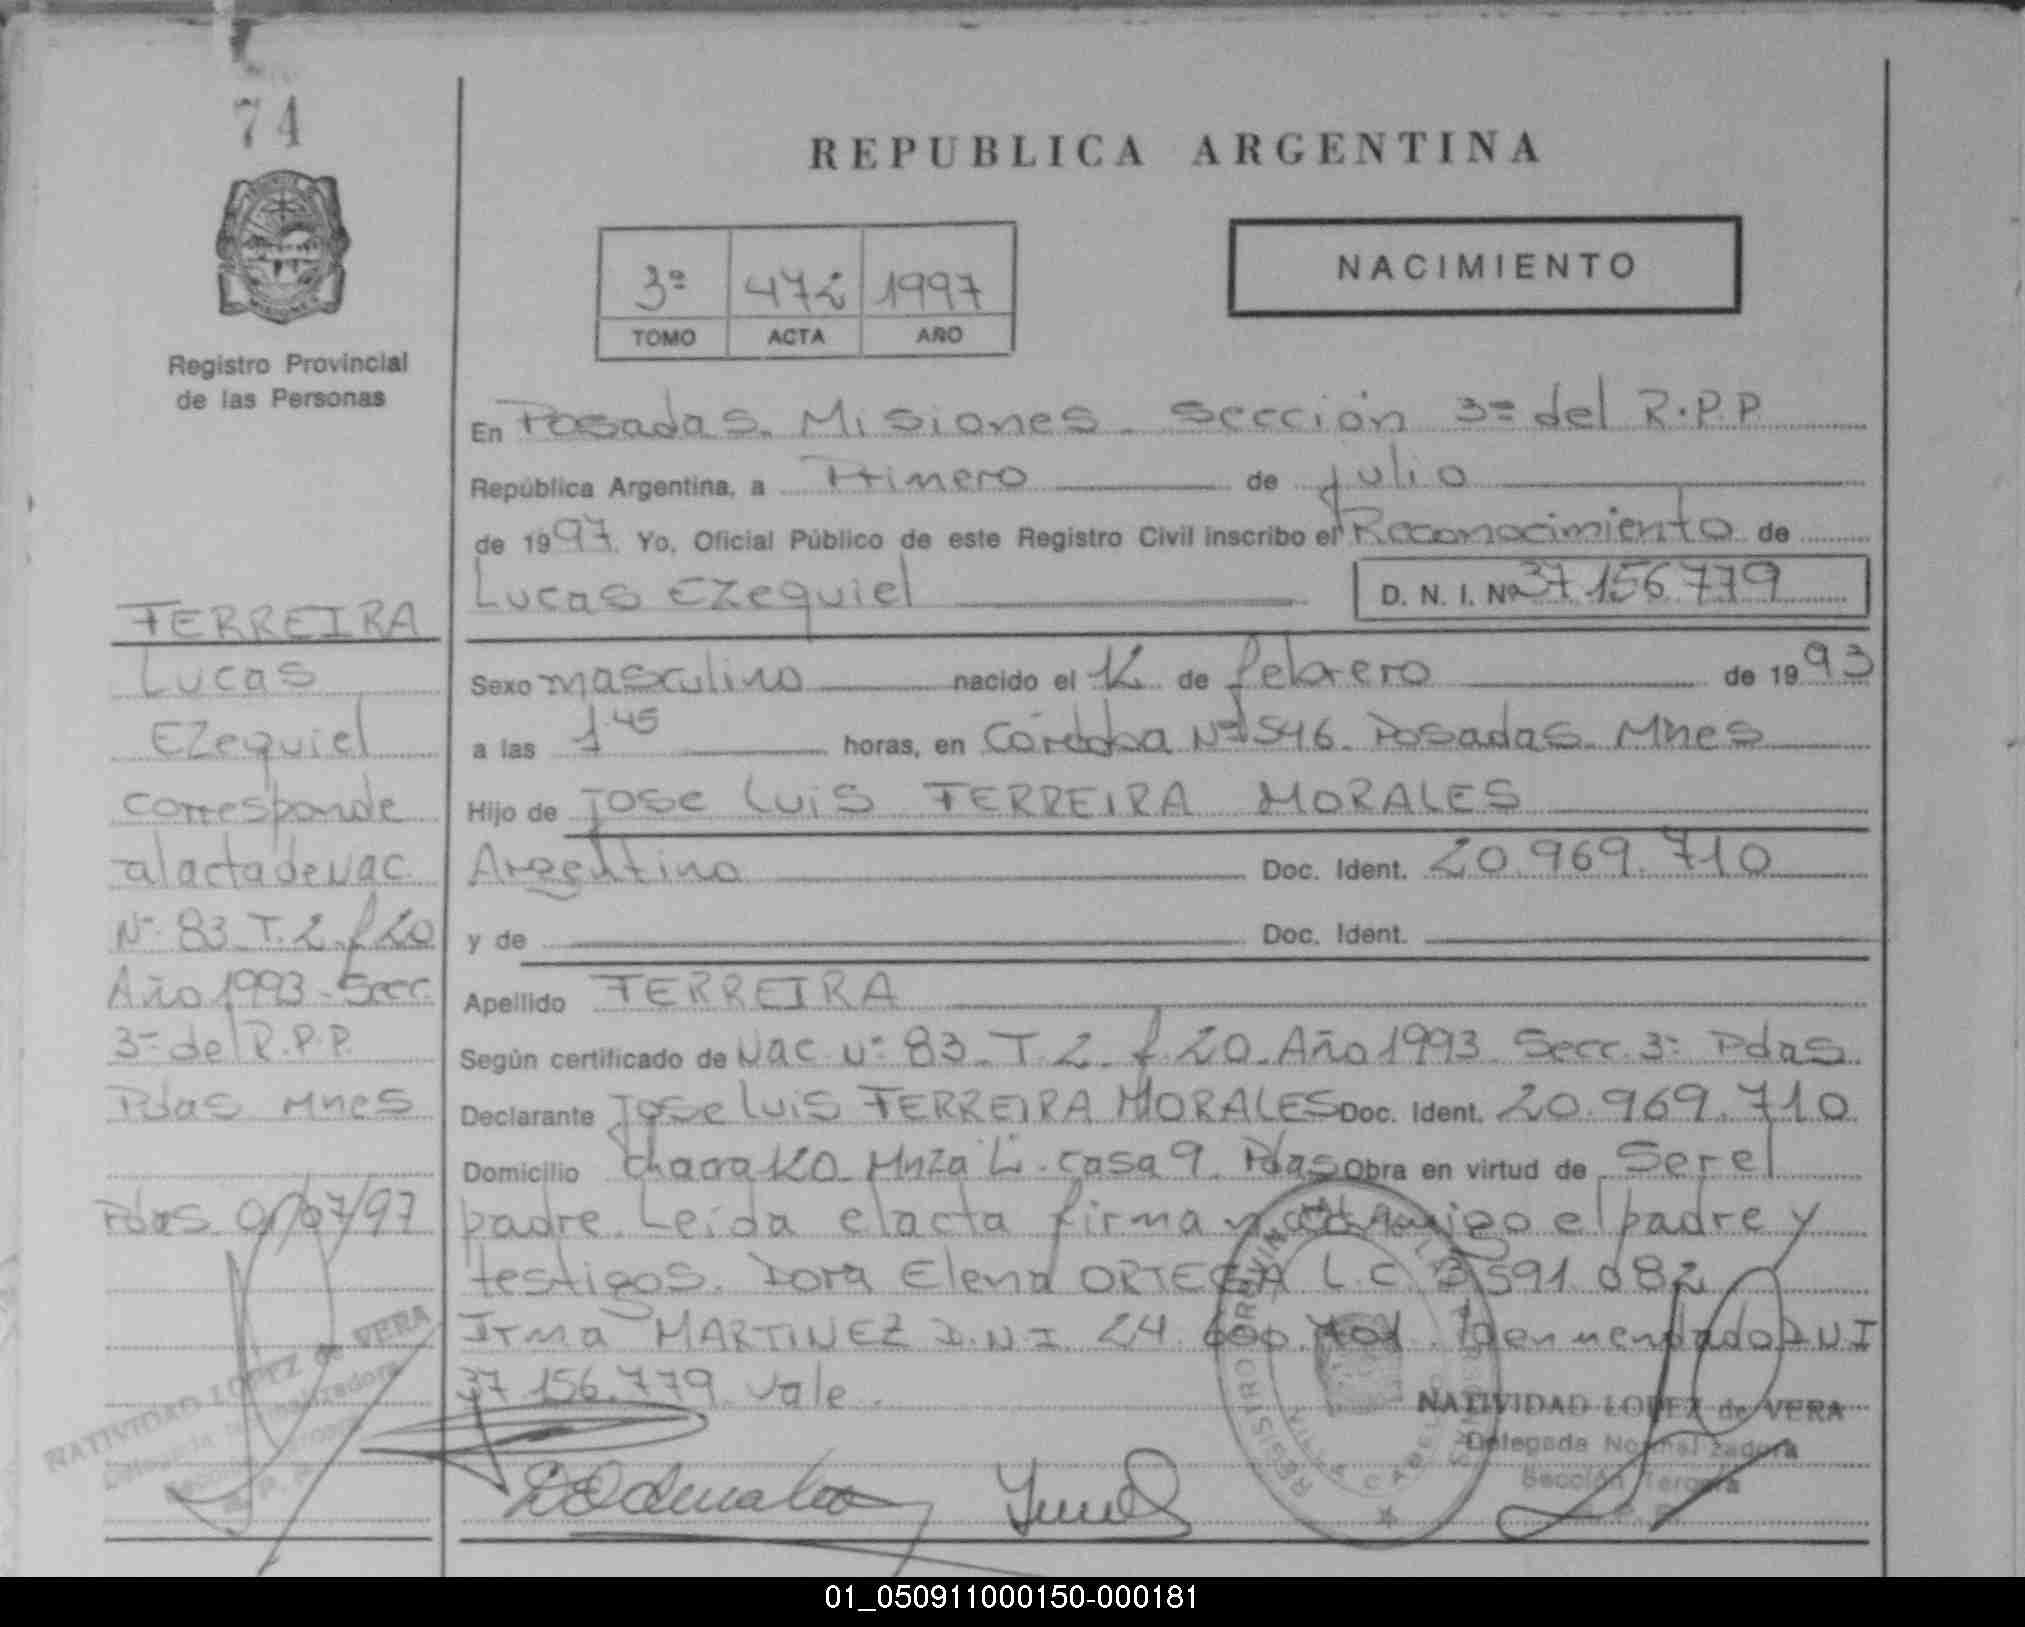 74
REPUBLICA ARGENTINA
NACIMIENTO
3ª 472 1997
TOMO ACTA AÑO
Registro Provincial
de las Personas
En Posadas. Misiones. Sección 3ª del R.P.P.
República Argentina, a Primero de julio
de 1997. Yo, Oficial Público de este Registro Civil inscribo el Reconocimiento de
Lucas Ezequiel D. N. I. Nº 37 156 779
Sexo masculino nacido el 12 de febrero de 1993
a las 1.45 horas, en Córdoba Nº 1546. Posadas. Mnes
Hijo de Jose Luis FERREIRA MORALES
Argentino Doc. Ident. 20.969.710
y de Doc. Ident.
Apellido FERREIRA
Según certificado de Nac. nº 83. T. 2. f. 20. Año 1993. Secc. 3ª Pdas.
Declarante Jose Luis FERREIRA MORALES Doc. Ident. 20.969.710
Domicilio chacra 120. Mnza "L". casa 9. Pdas Obra en virtud de ser el
padre. Leida el acta firman conmigo el padre y
testigos. Dora Elena ORTEGA L.C. 591.082
Irma MARTINEZ D.N.I. 24.600. enmendado D.N.I
37 156.779. Vale.
NATIVIDAD LOPEZ de VERA
Delegada Normalizadora
Sección Tercera
FERREIRA
Lucas
Ezequiel
corresponde
al acta de nac.
Nº 83 T. 2. f 20
Año 1993 - Secc.
3ª del R.P.P.
Pdas Mnes
Pdas 01/07/97
NATIVIDAD LOPEZ de VERA
Delegada Normalizadora
01_050911000150-000181